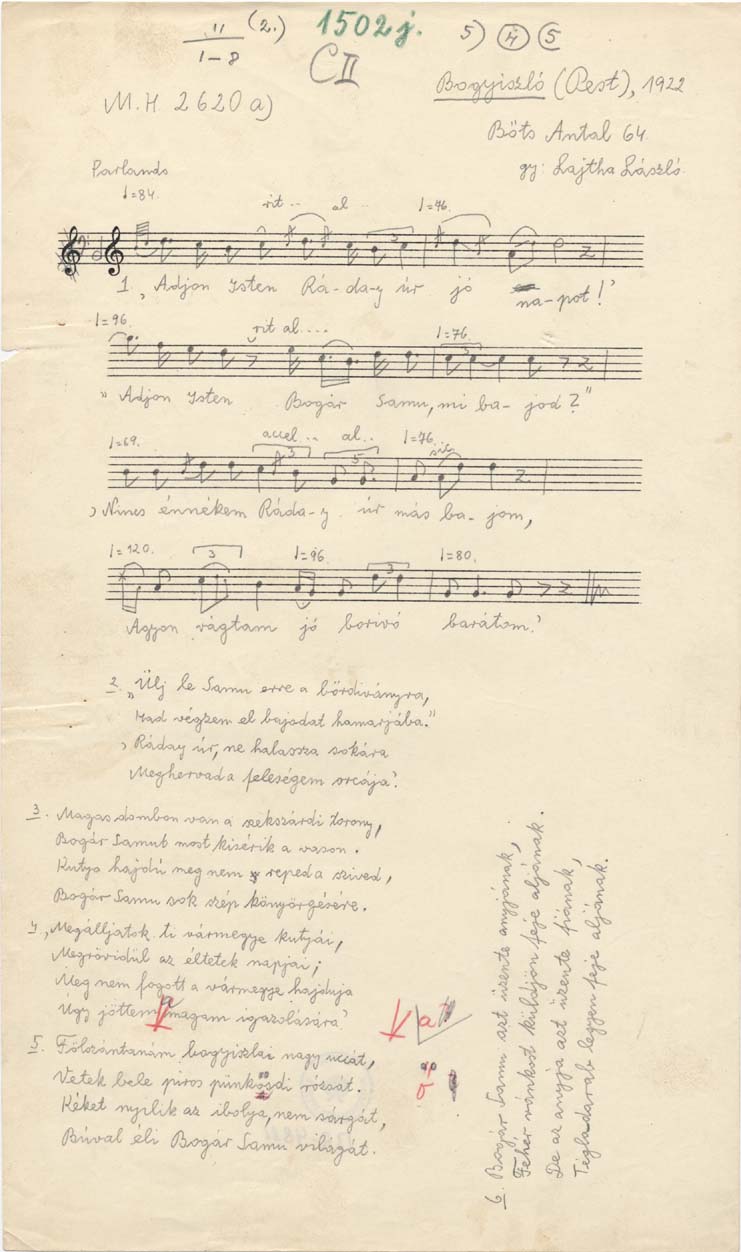 11 (2.) 1502j. 5) 4 5
1-8 C II
M.H 2620 a) Bogyiszló (Pest), 1922
Bőts Antal 64.
gy: Lajtha László
Parlando
♩=84. rit... al.. ♩=76.
3
1. „Adjon Isten Rá-da-y úr jó na-pot!'
♩=96. rit al.... ♩=76.
3
"Adjon Isten Bogár Samu, mi ba-jod?"
♩=69. accel... al.. ♩=76.
3 5
'Nincs énnékem Ráda-y úr más ba-jom,
♩=120. 3 ♩=96. ♩=80.
3
Agyon vágtam jó borivó barátom.'
2. „Ülj le Samu erre a bőrdiványra,
Had végzem el bajodat hamarjába."
'Ráday úr, ne halassza sokára
Meghervad a feleségem orcája.'
3. Magas dombon van a szekszárdi torony,
Bogár Samut most kisérik a vason.
Kutya hajdú meg nem reped a szived,
Bogár Samu sok szép könyörgésére.
4. 'Megálljatok ti vármegye kutjái,
Megrövidül az éltetek napjai;
Meg nem fogott a vármegye hajduja
Úgy jöttem a magam igazolására'
a
5. Fölszántanám bogyiszlai nagy uccát,
Vetek bele piros pünkösdi rózsát.
Kéket nyilik az ibolya, nem sárgát,
Búval éli Bogár Samu világát.
6. Bogár Samu azt üzente anyjának,
Fehér vánkost küldjön feje aljának.
De az anyja azt üzente fiának,
Tégladarab legyen feje aljának.